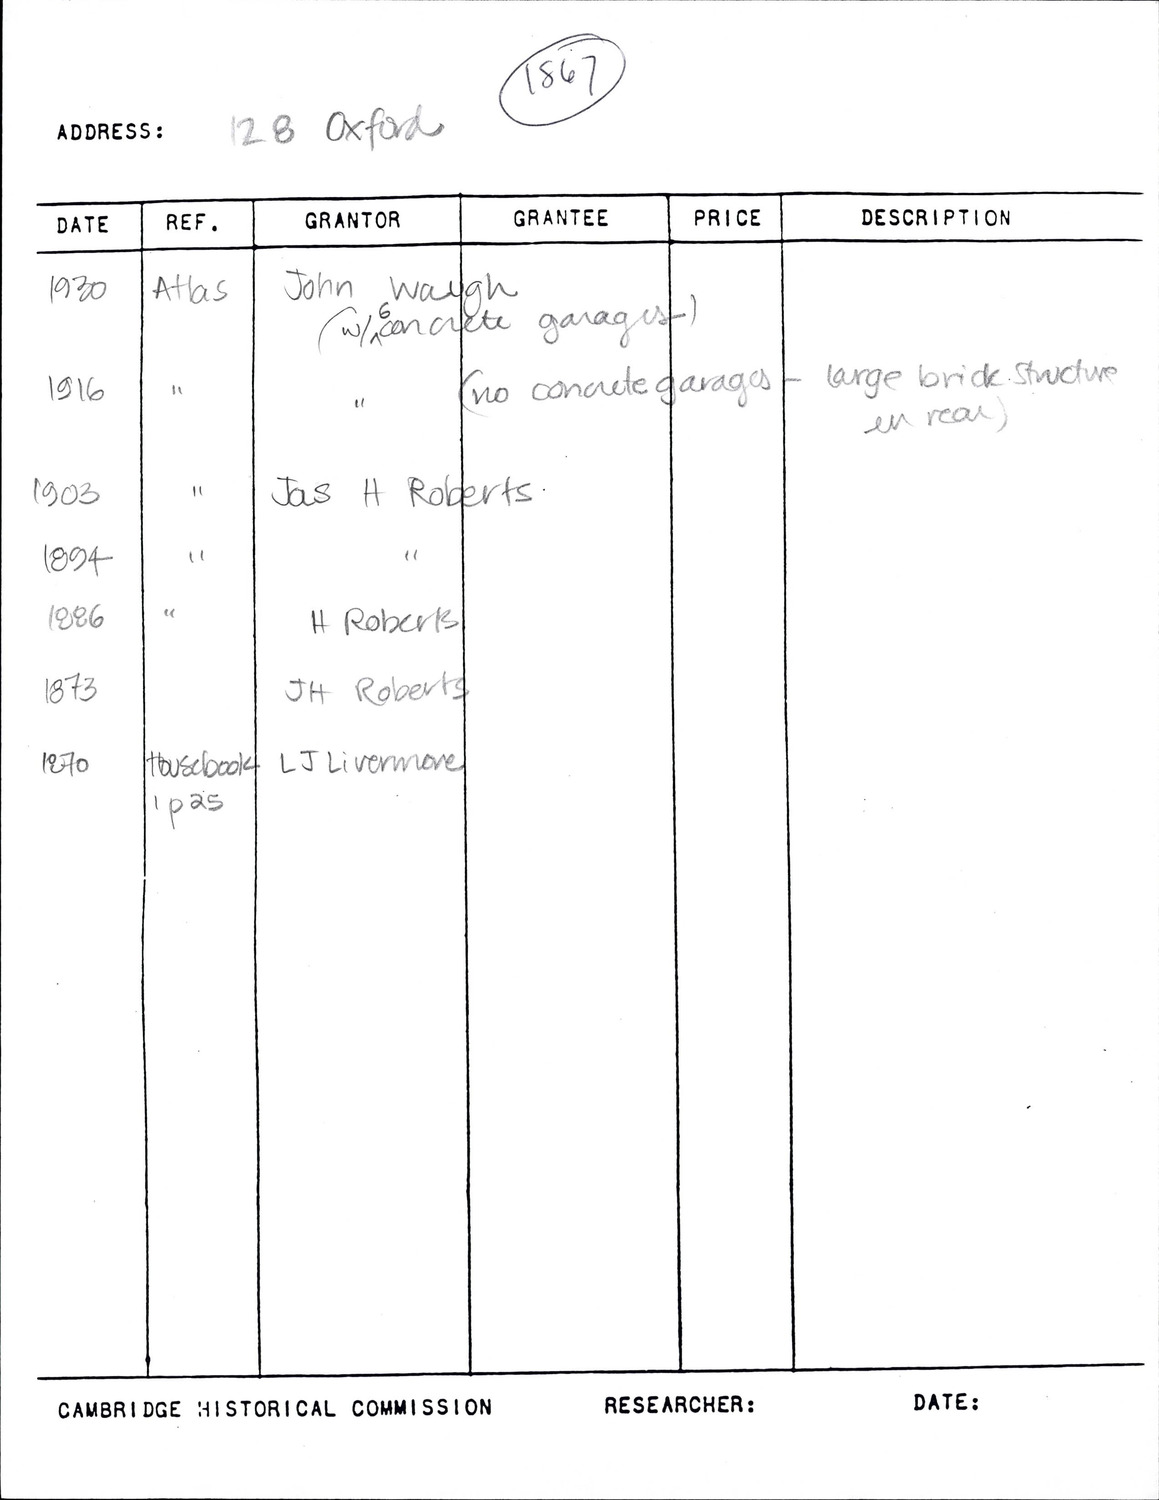 1867
ADDRESS: 128 Oxford
DATE REF. GRANTOR GRANTEE PRICE DESCRIPTION
1930 Atlas John Waugh
(w/ 6 concrete garages)
1916 " " (no concrete garages – large brick structure
in rear)
1903 " Jas H Roberts.
1894 " "
1886 " H Roberts
1873 JH Roberts
1870 Housebook LJ Livermore
1 p25
CAMBRIDGE HISTORICAL COMMISSION RESEARCHER: DATE: